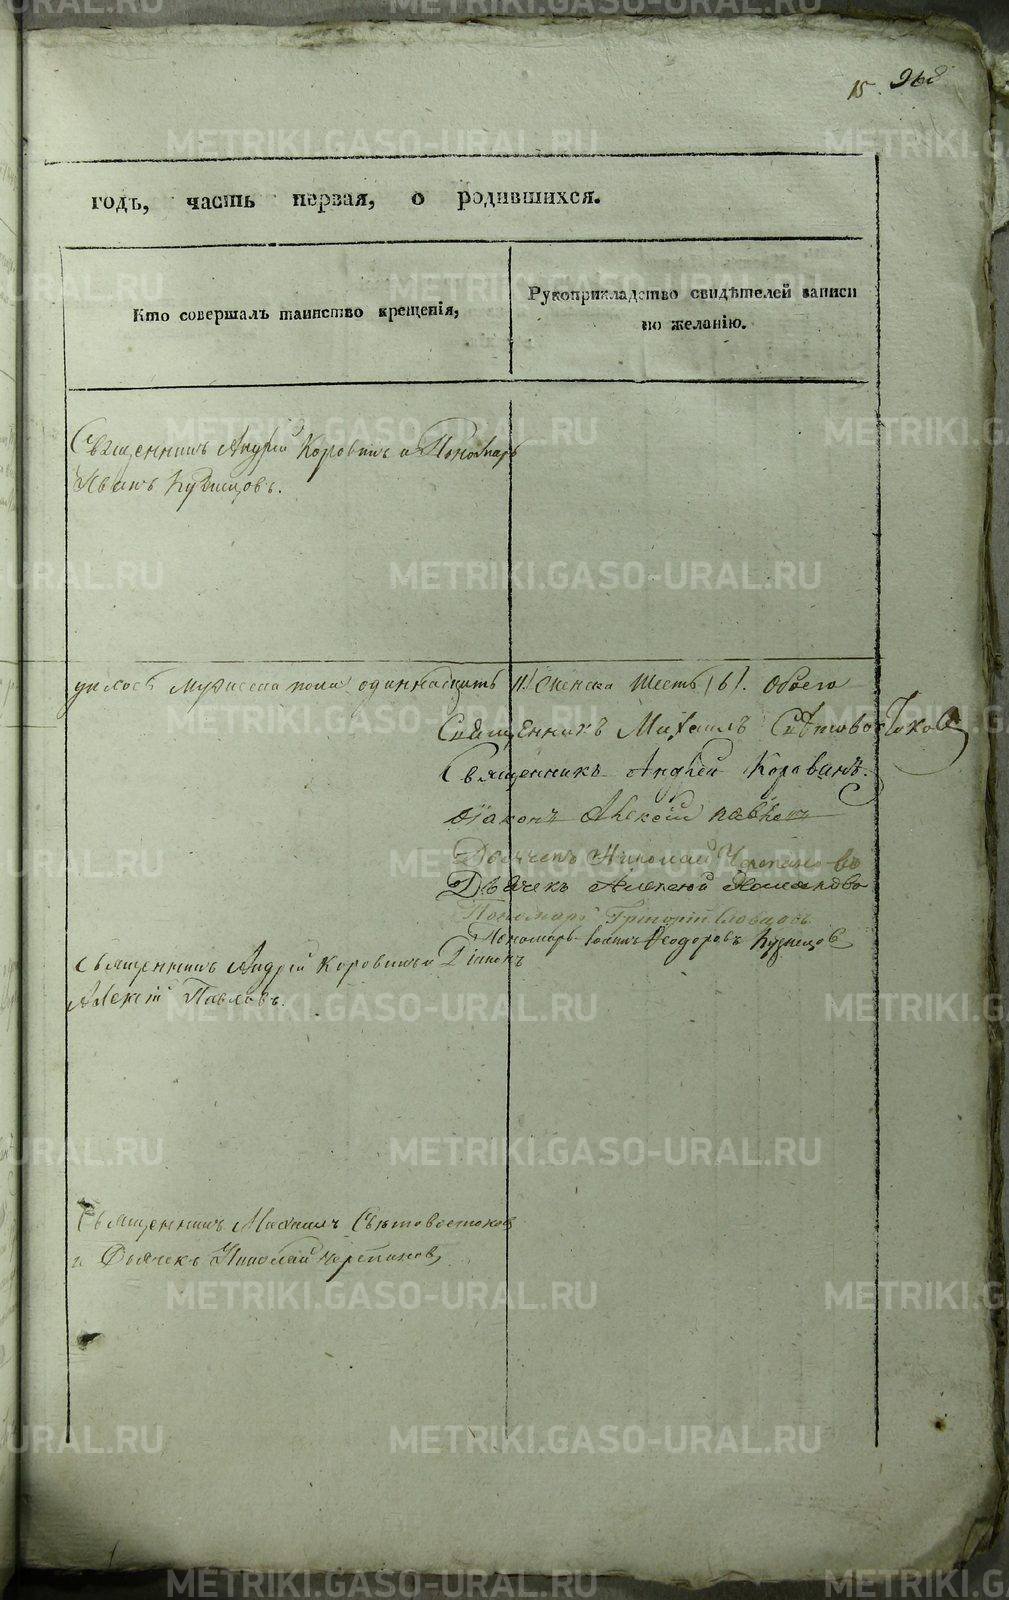 15. 968
годъ, часть первая, о родившихся.
Кто совершалъ таинство крещенія,
Рукоприкладство свидѣтелей записи
по желанію.
Священникъ Андрей Коровинъ и Пономарь
Иванъ Кузнецовъ.
мужеска пола одиннадцать 11. женска шесть (6). обоего
Священникъ Михаилъ Свѣтовостоковъ
Священникъ Андрей Коровинъ.
Діаконъ Алексѣй Павловъ
Дьячекъ Николай Черепановъ
Дьячекъ Алексѣй
Пономарь Григорій Словцовъ
Пономарь Іоаннъ Ѳеодоровъ Кузнецовъ
Священникъ Андрей Коровинъ и Діаконъ
Алексій Павловъ.
Священникъ Михаилъ Свѣтовостоковъ
и Дьячекъ Николай Черепановъ
METRIKI.GASO-URAL.RU